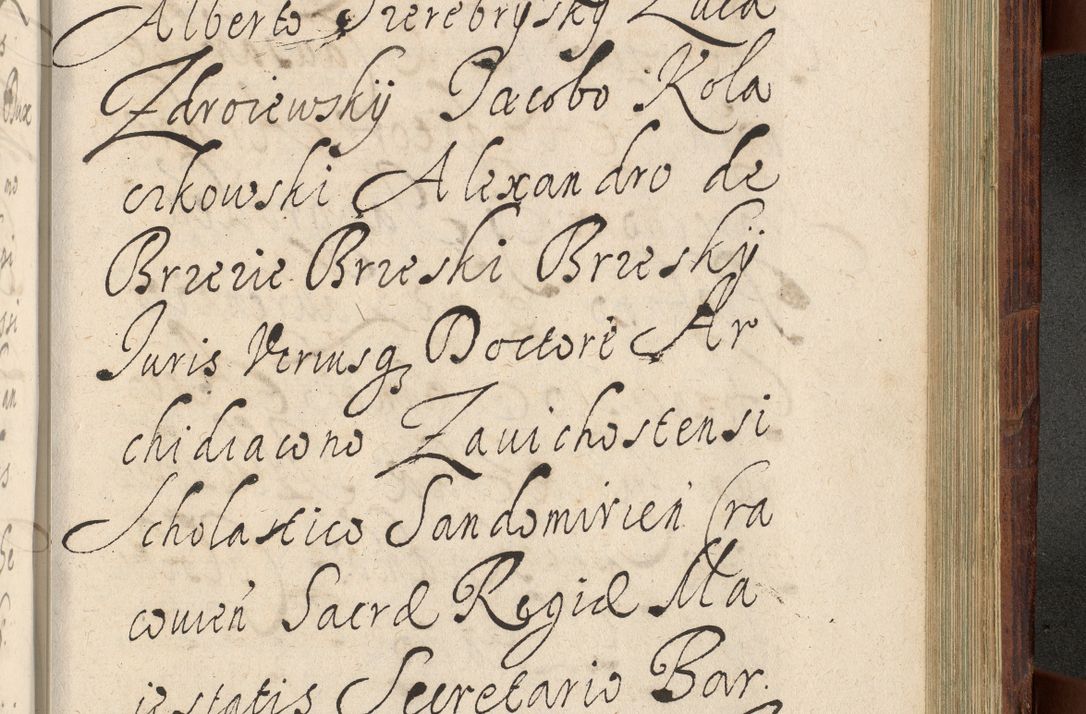 Alberto Srerebrysky Luca
Zdroiewskÿ Jacobo Kola
czkowski Alexandro de
Brzezie Brzeski Brzeskÿ
Juris Vtriusq Doctore Ar
chidiacono Zauichostensi
Scholastico Sandomirień Cra
couień Sacræ Regiæ Ma
iestatis Secretario Bar.